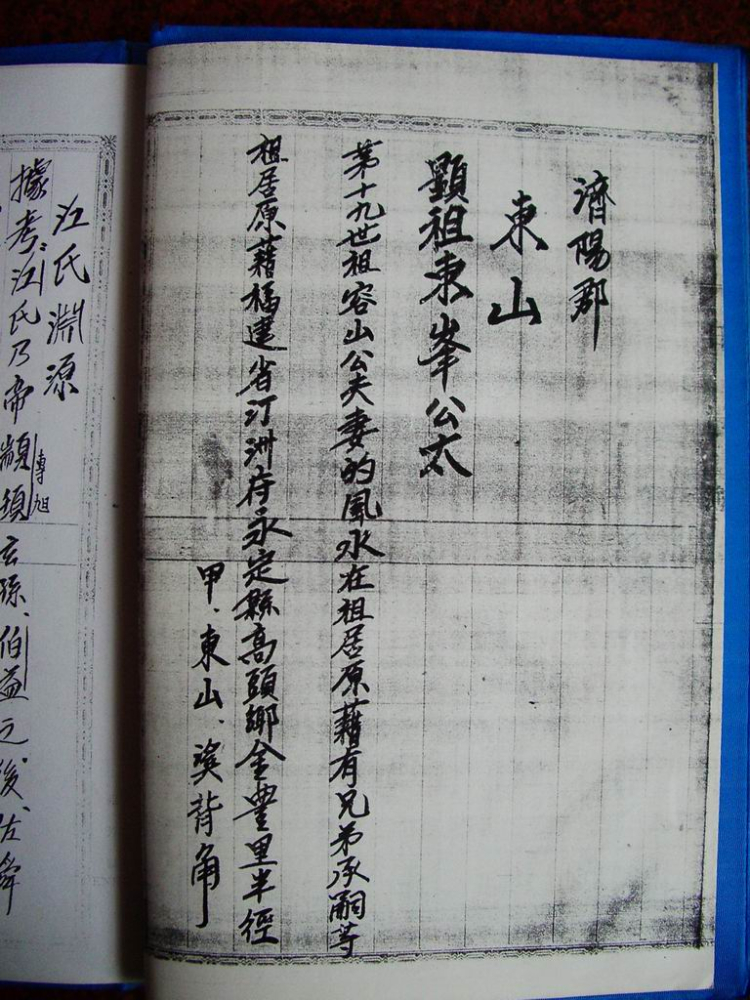 濟陽郡
東山
顯祖東峯公太
第十九世祖容山公夫妻的風水在祖居原藉有兄弟承嗣等
祖居原藉福建省汀洲府永定縣高頭鄉金豐里半徑
甲、東山、溪背角
江氏淵源
據考江氏乃帝顓頊玄孫、伯益之後、佐舜
專旭